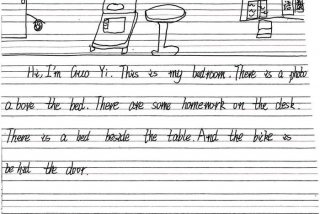 Hi, I'm Guo Yi. This is my bedroom. There is a photo
above the bed. There are some homework on the desk.
There is a bed beside the table. And the bike is
behind the door.